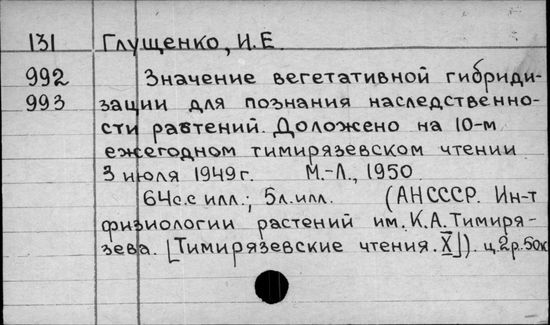 131 Глущенко, И.Е.
992 Значение вегетативной гибриди-
993 зации для познания наследственно-
сти растений. Доложено на 10-м
ежегодном тимирязевском чтении
3 июля 1949 г. М.-Л., 1950.
64с.с илл.; 5л.илл. (АН СССР. Ин-т
физиологии растений им. К.А. Тимиря-
зева. [Тимирязевские чтения. X]). ц.2р.50к